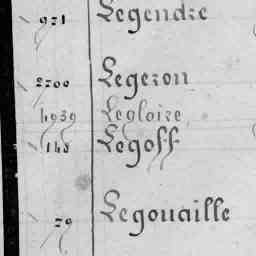 971 Legendre
2700 Legeron
4939 Legloire
148 Legoff
79 Legouaille